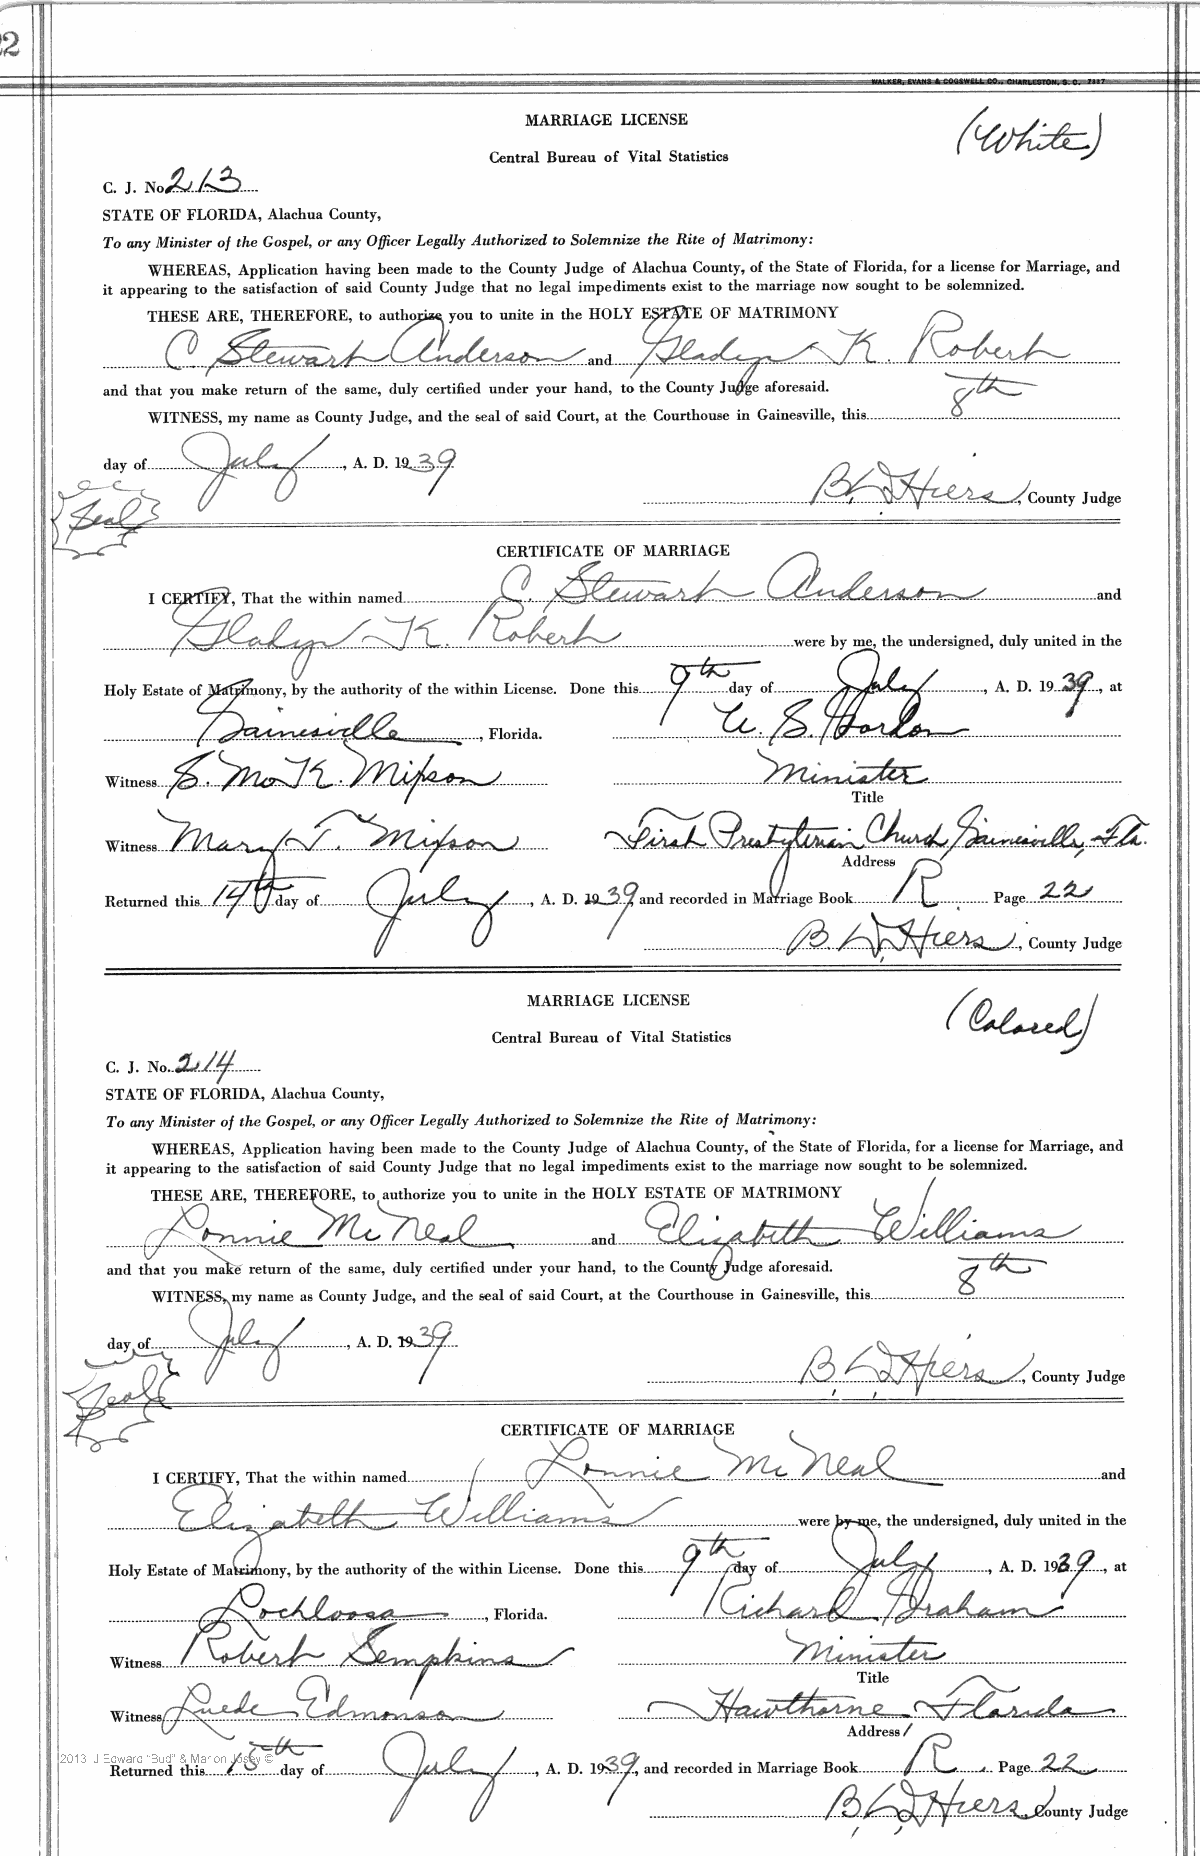 22
WALKER, EVANS & COGSWELL CO., CHARLESTON, S. C. 7327
MARRIAGE LICENSE
(White)
Central Bureau of Vital Statistics
C. J. No. 213
STATE OF FLORIDA, Alachua County,
To any Minister of the Gospel, or any Officer Legally Authorized to Solemnize the Rite of Matrimony:
WHEREAS, Application having been made to the County Judge of Alachua County, of the State of Florida, for a license for Marriage, and
it appearing to the satisfaction of said County Judge that no legal impediments exist to the marriage now sought to be solemnized.
THESE ARE, THEREFORE, to authorize you to unite in the HOLY ESTATE OF MATRIMONY
C. Stewart Anderson and Gladyn K. Robert
and that you make return of the same, duly certified under your hand, to the County Judge aforesaid.
WITNESS, my name as County Judge, and the seal of said Court, at the Courthouse in Gainesville, this 8th
day of July, A. D. 1939
Seal
B. L. D. Hiers, County Judge
CERTIFICATE OF MARRIAGE
I CERTIFY, That the within named C. Stewart Anderson and
Gladyn K. Robert were by me, the undersigned, duly united in the
Holy Estate of Matrimony, by the authority of the within License. Done this 9th day of July, A. D. 1939, at
Gainesville, Florida. U. S. Gordon
Witness S. McK. Mixson Minister
Title
Witness Mary T. Mixson First Presbyterian Church, Gainesville, Fla.
Address
Returned this 14th day of July, A. D. 1939, and recorded in Marriage Book R Page 22
B. L. D. Hiers, County Judge
MARRIAGE LICENSE
(Colored)
Central Bureau of Vital Statistics
C. J. No. 214
STATE OF FLORIDA, Alachua County,
To any Minister of the Gospel, or any Officer Legally Authorized to Solemnize the Rite of Matrimony:
WHEREAS, Application having been made to the County Judge of Alachua County, of the State of Florida, for a license for Marriage, and
it appearing to the satisfaction of said County Judge that no legal impediments exist to the marriage now sought to be solemnized.
THESE ARE, THEREFORE, to authorize you to unite in the HOLY ESTATE OF MATRIMONY
Lonnie McNeal and Elizabeth Williams
and that you make return of the same, duly certified under your hand, to the County Judge aforesaid.
WITNESS, my name as County Judge, and the seal of said Court, at the Courthouse in Gainesville, this 8th
day of July, A. D. 1939
Seal
B. L. D. Hiers, County Judge
CERTIFICATE OF MARRIAGE
I CERTIFY, That the within named Lonnie McNeal and
Elizabeth Williams were by me, the undersigned, duly united in the
Holy Estate of Matrimony, by the authority of the within License. Done this 9th day of July, A. D. 1939, at
Lochloosa, Florida. Richard Graham
Witness Robert Sempkins Minister
Title
Witness Luede Edmonson Hawthorne Florida
Address
2013 J Edward "Bud" & Marion Josey ©
Returned this 15th day of July, A. D. 1939, and recorded in Marriage Book R. Page 22
B. L. D. Hiers, County Judge